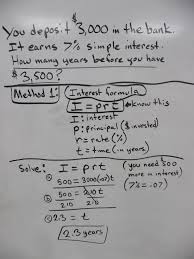 You deposit $3,000 in the bank.
It earns 7% simple interest.
How many years before you have
$3,500?
Method 1: Interest formula
I = prt ← know this
I: interest
p: principal ($ invested)
r = rate (%)
t = time (in years)
Solve: I = prt (you need $500
more in interest)
① 500 = 3000(.07)t (7% = .07)
② 500 = 210t
210 210
③ 2.3 = t
2.3 years